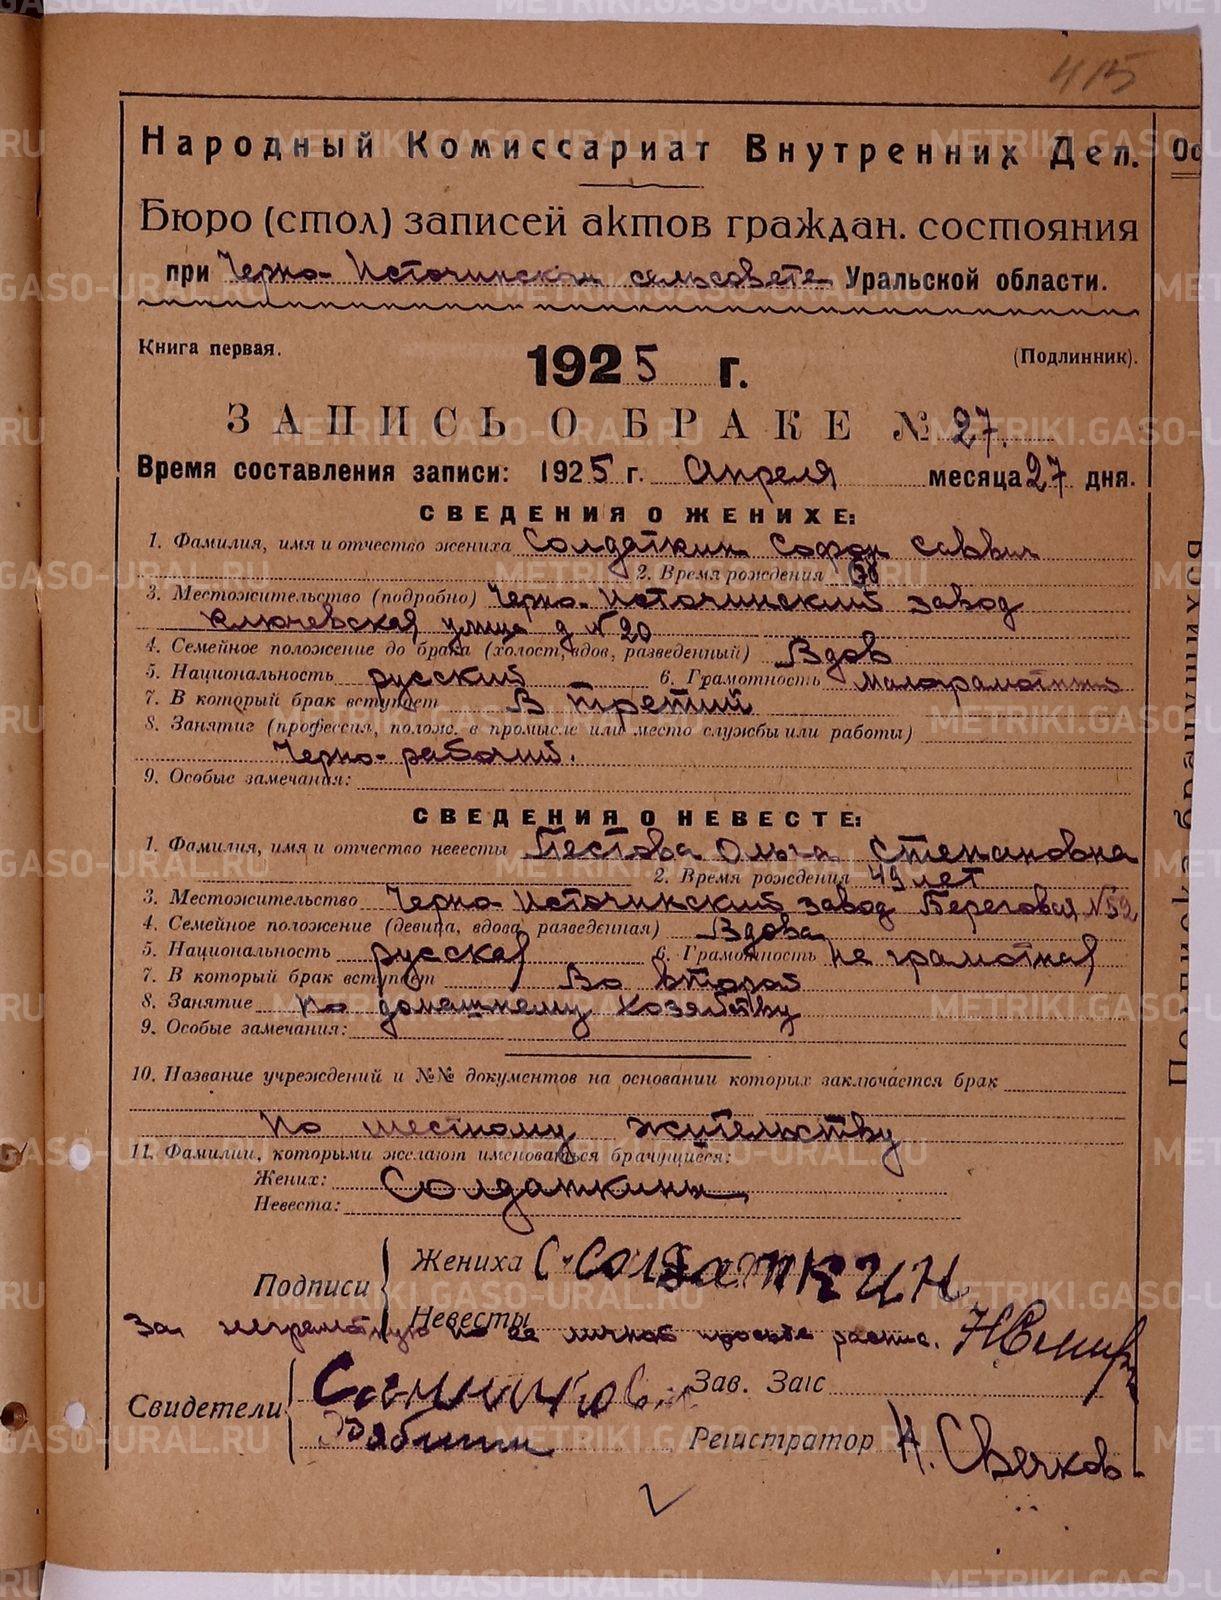 415
Народный Комиссариат Внутренних Дел.
Бюро (стол) записей актов граждан. состояния
при Черно-Источинском сельсовете Уральской области.
Книга первая.
1925 г.
(Подлинник).
ЗАПИСЬ О БРАКЕ № 27.
Время составления записи: 1925 г. Апреля месяца 27 дня.
СВЕДЕНИЯ О ЖЕНИХЕ:
1. Фамилия, имя и отчество жениха Солдаткин Софон Саввич
2. Время рождения
3. Местожительство (подробно) Черно-Источинский завод
Ключевская улица д № 20
4. Семейное положение до брака (холост, вдов, разведенный) Вдов
5. Национальность русский 6. Грамотность малограмотный
7. В который брак вступает В третий
8. Занятие (профессия, полож. в промысле или место службы или работы)
Черно-рабочий.
9. Особые замечания:
СВЕДЕНИЯ О НЕВЕСТЕ:
1. Фамилия, имя и отчество невесты Пестова Ольга Степановна
2. Время рождения 49 лет
3. Местожительство Черно-Источинский завод Береговая № 52
4. Семейное положение (девица, вдова, разведенная) Вдова
5. Национальность русская 6. Грамотность не грамотная
7. В который брак вступает Во второй
8. Занятие по домашнему хозяйству
9. Особые замечания:
10. Название учреждений и №№ документов на основании которых заключается брак
По местному жительству
11. Фамилии, которыми желают именоваться брачущиеся:
Жених: Солдаткины
Невеста:
Подписи
Жениха С. Солдаткин
Невесты
За неграмотную по ее личной просьбе распис.
Свидетели
Санников
Зав. Загс
Рябинин
Регистратор Н. Свечков
Подписка брачущихся